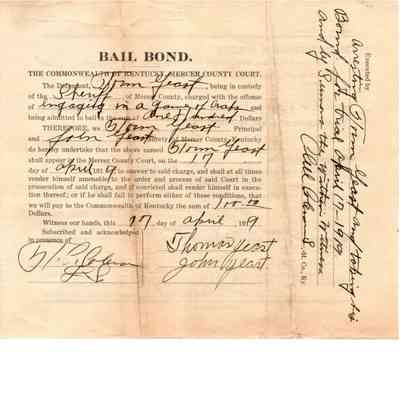 BAIL BOND.
THE COMMONWEALTH OF KENTUCKY, MERCER COUNTY COURT.
The Defendant, Thom Yeast being in custody
of the Sheriff of Mercer County, charged with the offense
of engaging in a game of Craps and
being admitted to bail in the sum of One Hundred Dollars
THEREFORE, we Thom Yeast Principal
and John Yeast Surety of Mercer County,
do hereby undertake that the above named Thom Yeast
shall appear in the Mercer County Court, on the 17
day of April 1919 to answer to said charge, and shall at all times
render himself amenable to the order and process of said Court in the
prosecution of said charge, and if convicted shall render himself in execu-
tion thereof; or if he shall fail to perform either of these conditions, that
we will pay to the Commonwealth of Kentucky the sum of 100.00
Dollars.
Witness our hands, this 17 day of April 1919
Subscribed and acknowledged
in presence of
Thomas Yeast
John Yeast
Executed by
arresting Thom Yeast and taking his
Bond for trial April 17, 1919
and by
M. Co., Ky.